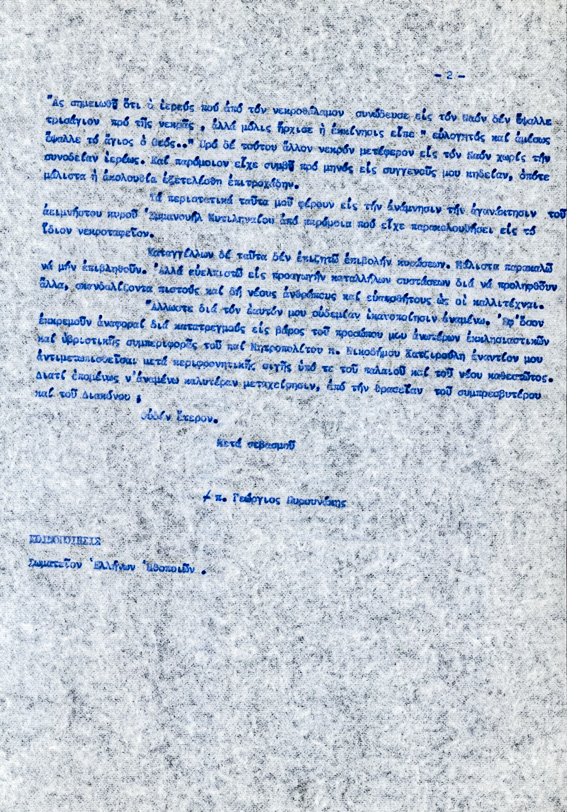 - 2 -
"Ας σημειωθῇ ὅτι ὁ ἱερεύς πού ἀπό τόν νεκροθάλαμον συνώδευσε εἰς τόν Ναόν δέν ἔψαλλε
τρισάγιον πρό τῆς νεκρῆς , ἀλλά μόλις ἤρχισε ἡ ἐκκίνησις εἶπε " εὐλογητός καί ἀμέσως
ἔψαλλε τό ἅγιος ὁ θεός.." Πρό δέ τούτου ἄλλον νεκρόν μετέφερον εἰς τόν Ναόν χωρίς τήν
συνοδείαν ἱερέως. Καί παρόμοιον εἶχε συμβῇ πρό μηνός εἰς συγγενοῦς μου κηδείαν, ὁπότε
μάλιστα ἡ ἀκολουθία ἐξετελέσθη ἐπιτροχάδην.
Τά περιστατικά ταῦτα μοῦ φέρουν εἰς τήν ἀνάμνησιν τήν ἀγανάκτησιν τοῦ
ἀειμνήστου κυροῦ Ἐμμανουήλ Μυτιληναίου ἀπό παρόμοια πού εἶχε παρακολουθήσει εἰς τό
ἴδιον νεκροταφεῖον.
Καταγγέλλων δέ ταῦτα δέν ἐπιζητῶ ἐπιβολήν κυρώσεων. Μάλιστα παρακαλῶ
νά μήν ἐπιβληθοῦν. Ἀλλά εὐελπιστῶ εἰς προαγωγήν καταλλήλων συστάσεων διά νά προληφθοῦν
ἄλλα, σκανδαλίζοντα πιστούς καί δή νέους ἀνθρώπους καί εὐαισθήτους ὡς οἱ καλλιτέχναι.
"Αλλωστε διά τόν ἑαυτόν μου οὐδεμίαν ἱκανοποίησιν ἀναμένω. Ἐφ'ὅσον
ἐκκρεμοῦν ἀναφοραί διά κατατρεγμούς εἰς βάρος τοῦ προσώπου μου ἀνωτέρων ἐκκλησιαστικῶν
καί ὑβριστικῆς συμπεριφορᾶς τοῦ παί Μητροπολίτου π. Νικοδήμου Χατζιρούλη ἐναντίον μου
ἀντιμετωπισθεῖσαι μετά περιφρονητικῆς σιγῆς ὑπό τε τοῦ παλαιοῦ καί τοῦ νέου καθεστῶτος.
Διατί ἑπομένως ν'ἀναμένω καλυτέραν μεταχείρησιν, ἀπό τήν θρασεῖαν τοῦ συμπρεσβυτέρου
καί τοῦ Διακόνου ;
οὐδέν ἕτερον.
Μετά σεβασμοῦ
π. Γεώργιος Πυρουνάκης
ΚΟΙΝΟΠΟΙΗΣΙΣ
Σωματεῖον Ἑλλήνων Ἠθοποιῶν .